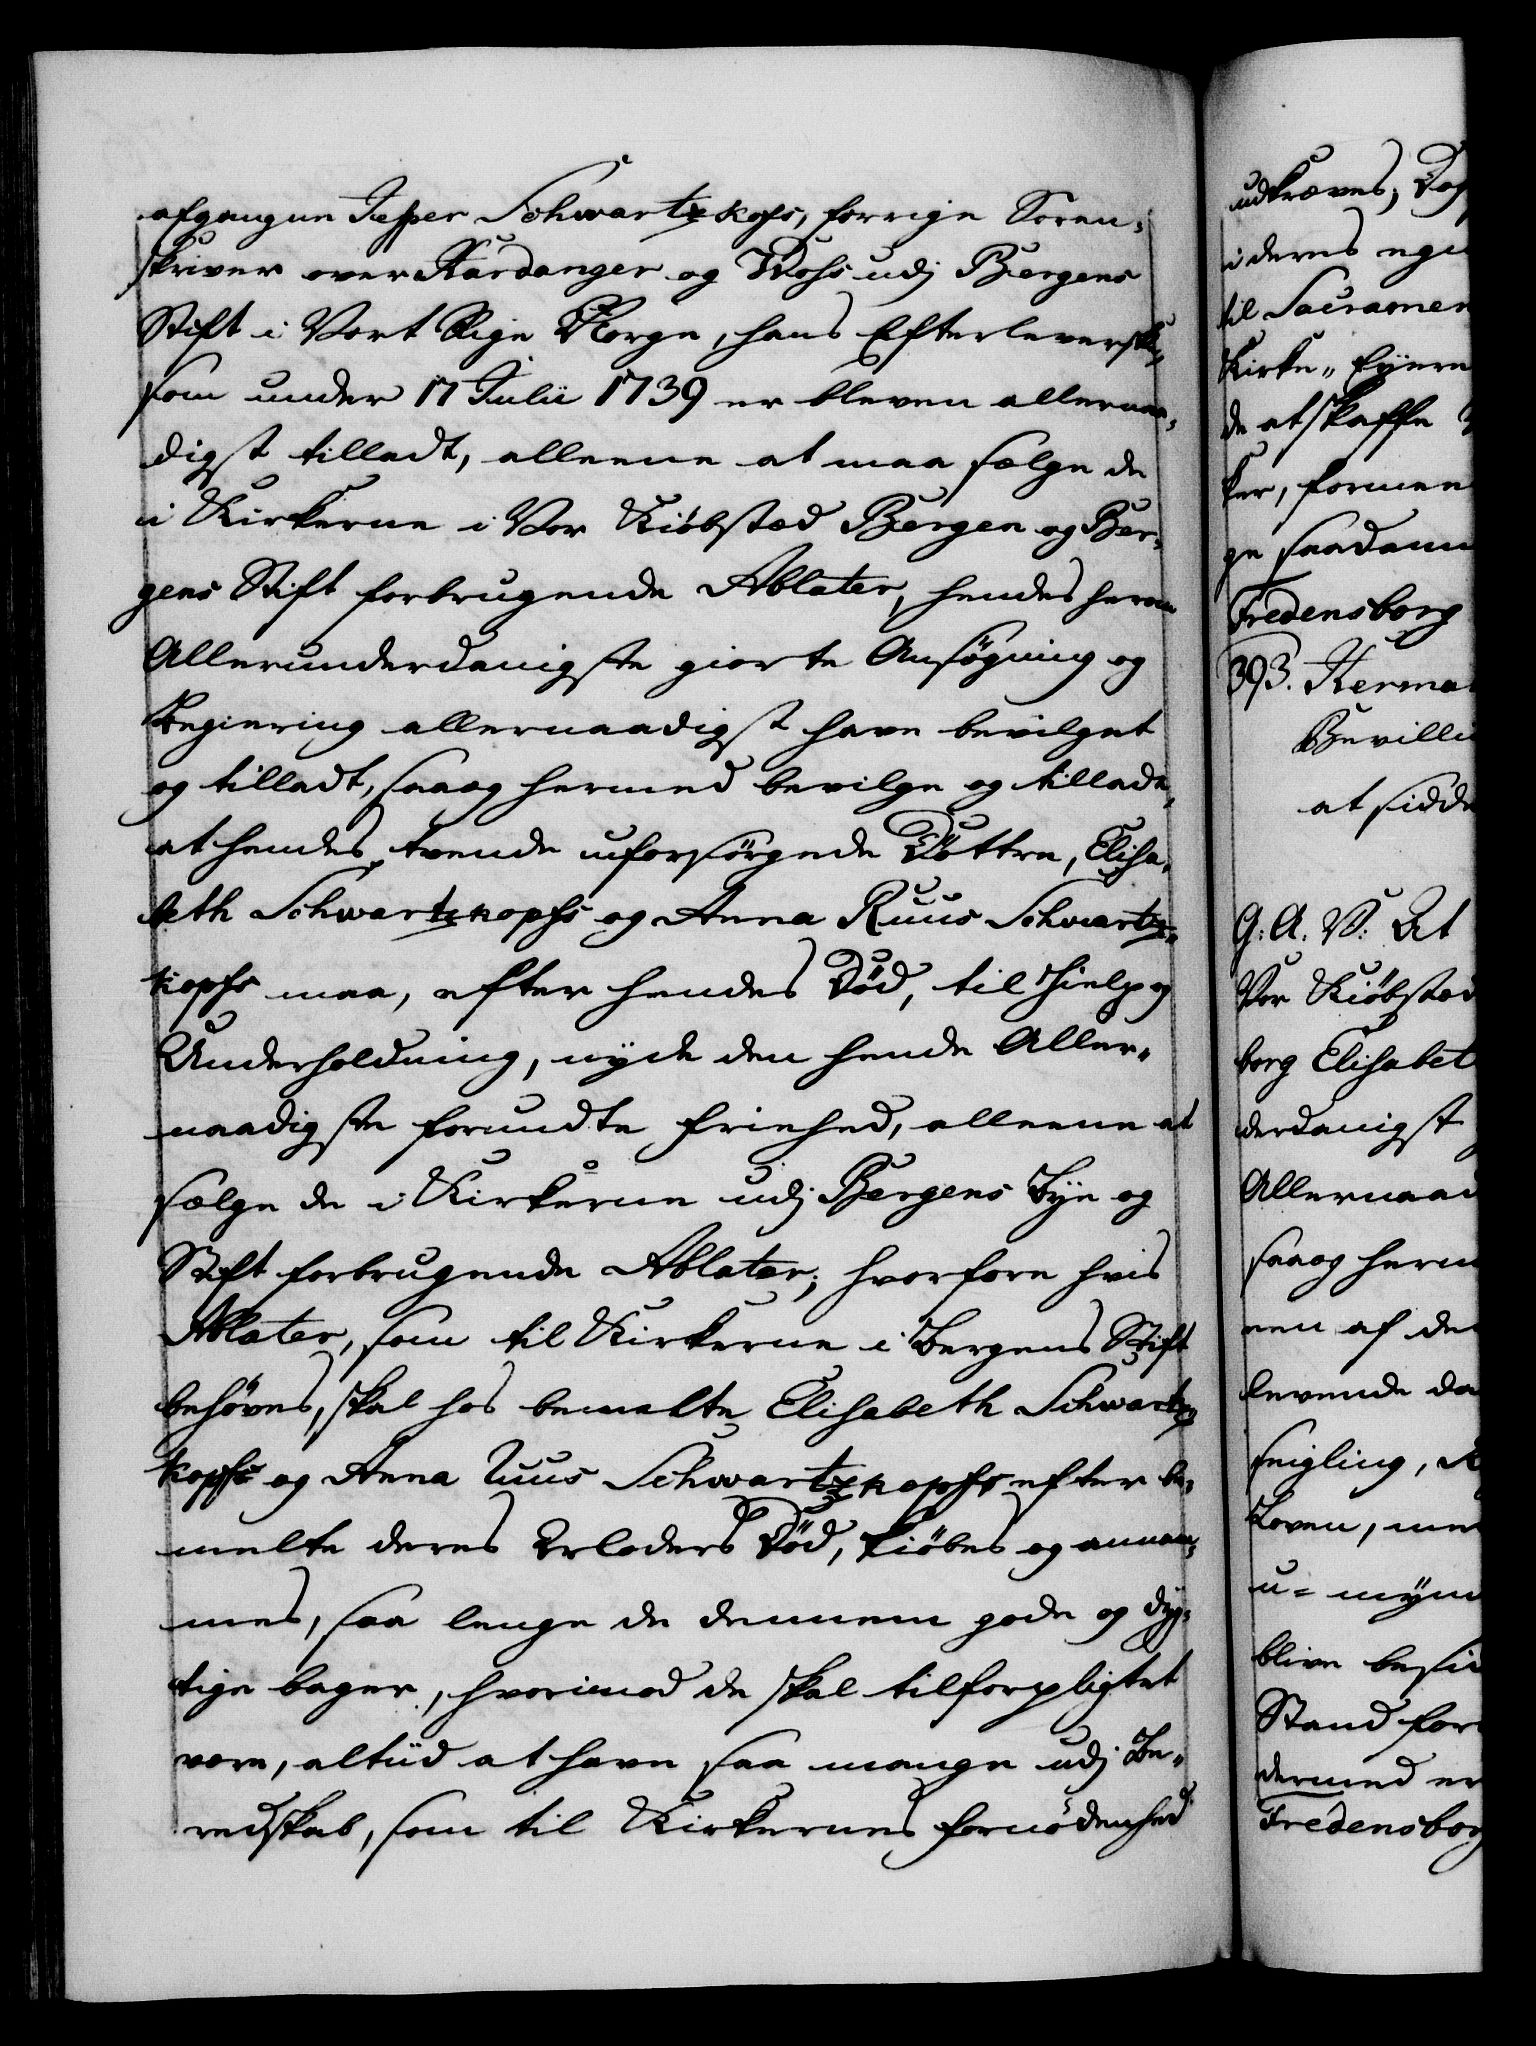 afgangne Jesper Schwartzkofs, forrige Soren-
skriver over Hardanger og Wohs udj Bergens
Stift i Vort Rige Norge, hans Efterleverske,
som under 17 Julii 1739 er bleven allernaa-
digst tilladt, alleene at maa sælge de
i Kirkerne i Vor Kiöbsted Bergen og Ber-
gens Stift forbrugende Ablater, hendes herom
Allerunderdanigste giorte Ansögning og
Begiering allernaadigst have bevilget
og tilladt, saa og hermed bevilge og tillade,
at hendes tvende uforsörgede Döttre, Elisa-
beth Schwartzkopfs og Anna Ruus Schwartz-
kopfs maa, efter hendes Död, til Hielp og
Underholdning, nyde den hende Aller-
naadigste forundte friehed, alleene at
sælge de i Kirkerne udj Bergens Bye og
Stift forbrugende Ablater; hvorfore hvis
Ablater, som til Kirkerne i Bergens Stift
behöves, skal hos bemelte Elisabeth Schwartz-
kopfs og Anna Ruus Schwartzkopfs efter be-
melte deres Moders Död, kiöbes og annam-
mes, saa lenge de dennem gode og dyg-
tige bager, hvorimod de skal tilforpligtet
være, altiid at have saa mange udj Be-
redskab, som til Kirkernes fornödenhed
udkræves; Dog
i deres egen
til Sacramen
Kirke-Eyere
de at skaffe
ker, formeen
ge saadann
Fredensborg
393. Herma
Bevilli
at sidde
G: A: V: At
Vor Kiöbsted
borg Elisabet
derdanigst
Allernaad
saa og herm
een af de
levende da
seigling,
Loven, me
u-myn
blive besid
Stand for
dermed er
Fredensborg